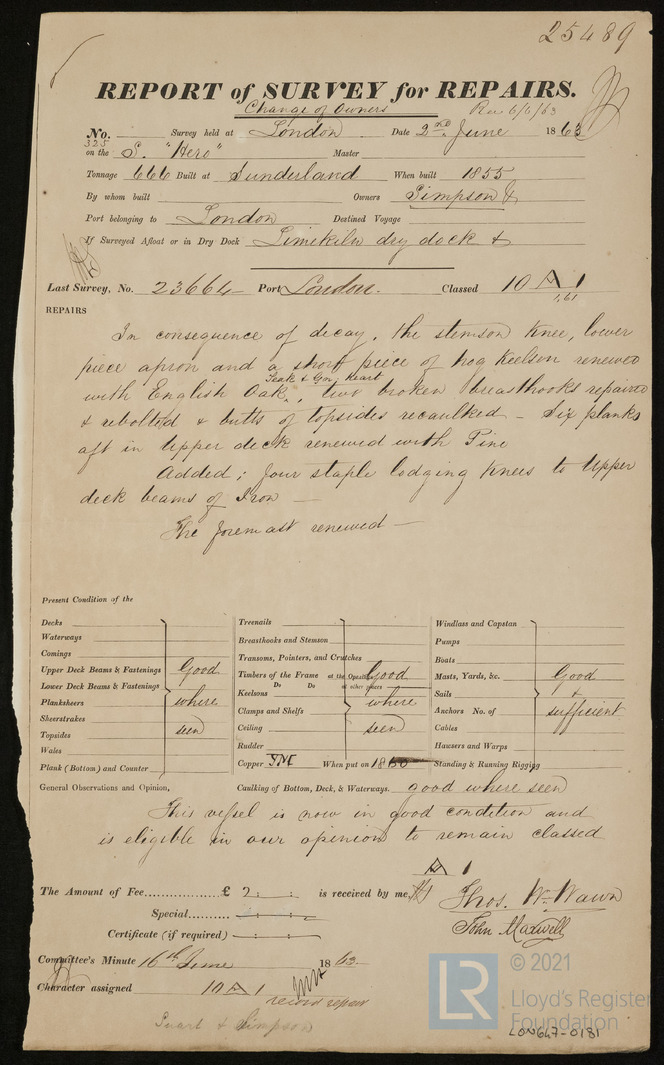 25489
REPORT of SURVEY for REPAIRS.
Change of Owners Rec 6/6/63
No. 325 Survey held at London Date 2nd June 1863
on the S. "Hero" Master
Tonnage 666 Built at Sunderland When built 1855
By whom built Owners Simpson &
Port belonging to London Destined Voyage
If Surveyed Afloat or in Dry Dock Limekiln dry dock &
Last Survey, No. 23664 Port London. Classed 10 A 1
1,61
REPAIRS
In consequence of decay, the stemson knee, lower
piece apron and a short piece of hog keelson renewed
Teak & Grn Heart
with English Oak, two broken breasthooks repaired
& rebolted & butts of topsides recaulked – Six planks
aft in Upper deck renewed with Pine
Added; four staple lodging knees to Upper
deck beams of Iron –
The foremast renewed –
Present Condition of the
Decks
Waterways
Comings
Upper Deck Beams & Fastenings
Lower Deck Beams & Fastenings
Planksheers
Sheerstrakes
Topsides
Wales
Plank (Bottom) and Counter
Good
where
seen
Treenails
Breasthooks and Stemson
Transoms, Pointers, and Crutches
Timbers of the Frame at the Openings
Do Do at other places
Keelsons
Clamps and Shelfs
Ceiling
Rudder
Copper When put on 1860
Good
where
seen
Windlass and Capstan
Pumps
Boats
Masts, Yards, &c.
Sails
Anchors No. of
Cables
Hawsers and Warps
Standing & Running Rigging
Good
&
sufficient
General Observations and Opinion, Caulking of Bottom, Deck, & Waterways. good where seen
This vessel is now in good condition and
is eligible in our opinion to remain classed
A 1
The Amount of Fee £ 2 : : is received by me,
Special
Certificate (if required)
Thos. Wm Wawn
John Maxwell
Committee's Minute 16th June 1863
Character assigned 10 A 1
record repair
& Simpson
LR
© 2021
Lloyd's Register
Foundation
LON647-0181